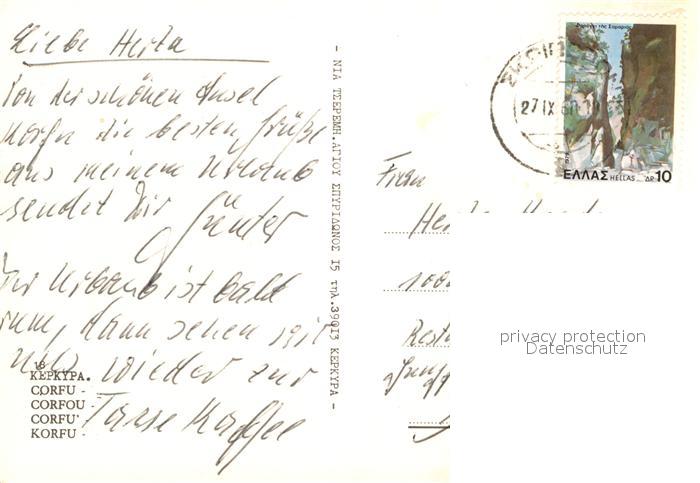 Liebe Herta
Von der schönen Insel
Korfu die besten Grüße
aus meinem Urlaub
sendet Dir Günter
Der Urlaub ist bald
rum, dann sehen wir
uns wieder zur
Tasse Kaffee
18
ΚΕΡΚΥΡΑ.
CORFU -
CORFOU -
CORFU' -
KORFU -
- ΝΤΑ ΤΣΕΡΕΜΗ. ΑΓΙΟΥ ΣΠΥΡΙΔΩΝΟΣ 15 τηλ.39013 ΚΕΡΚΥΡΑ -
27 IX 80
ΕΛΛΑΣ HELLAS ΔΡ 10
Frau
1000
privacy protection
Datenschutz